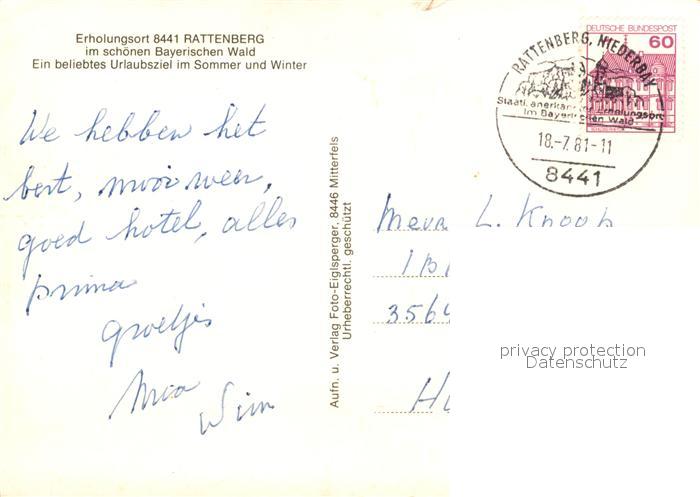 Erholungsort 8441 RATTENBERG
im schönen Bayerischen Wald
Ein beliebtes Urlaubsziel im Sommer und Winter
We hebben het
best, mooi weer,
goed hotel, alles
prima
groetjes
Wim
Aufn. u. Verlag Foto-Eiglsperger, 8446 Mitterfels
Urheberrechtl. geschützt
DEUTSCHE BUNDESPOST
60
RATTENBERG, NIEDERBAY
Staatl. anerkannter Erholungsort
im Bayer. Wald
18.-7.81-11
8441
Mevr L. Knoop
3564
privacy protection
Datenschutz